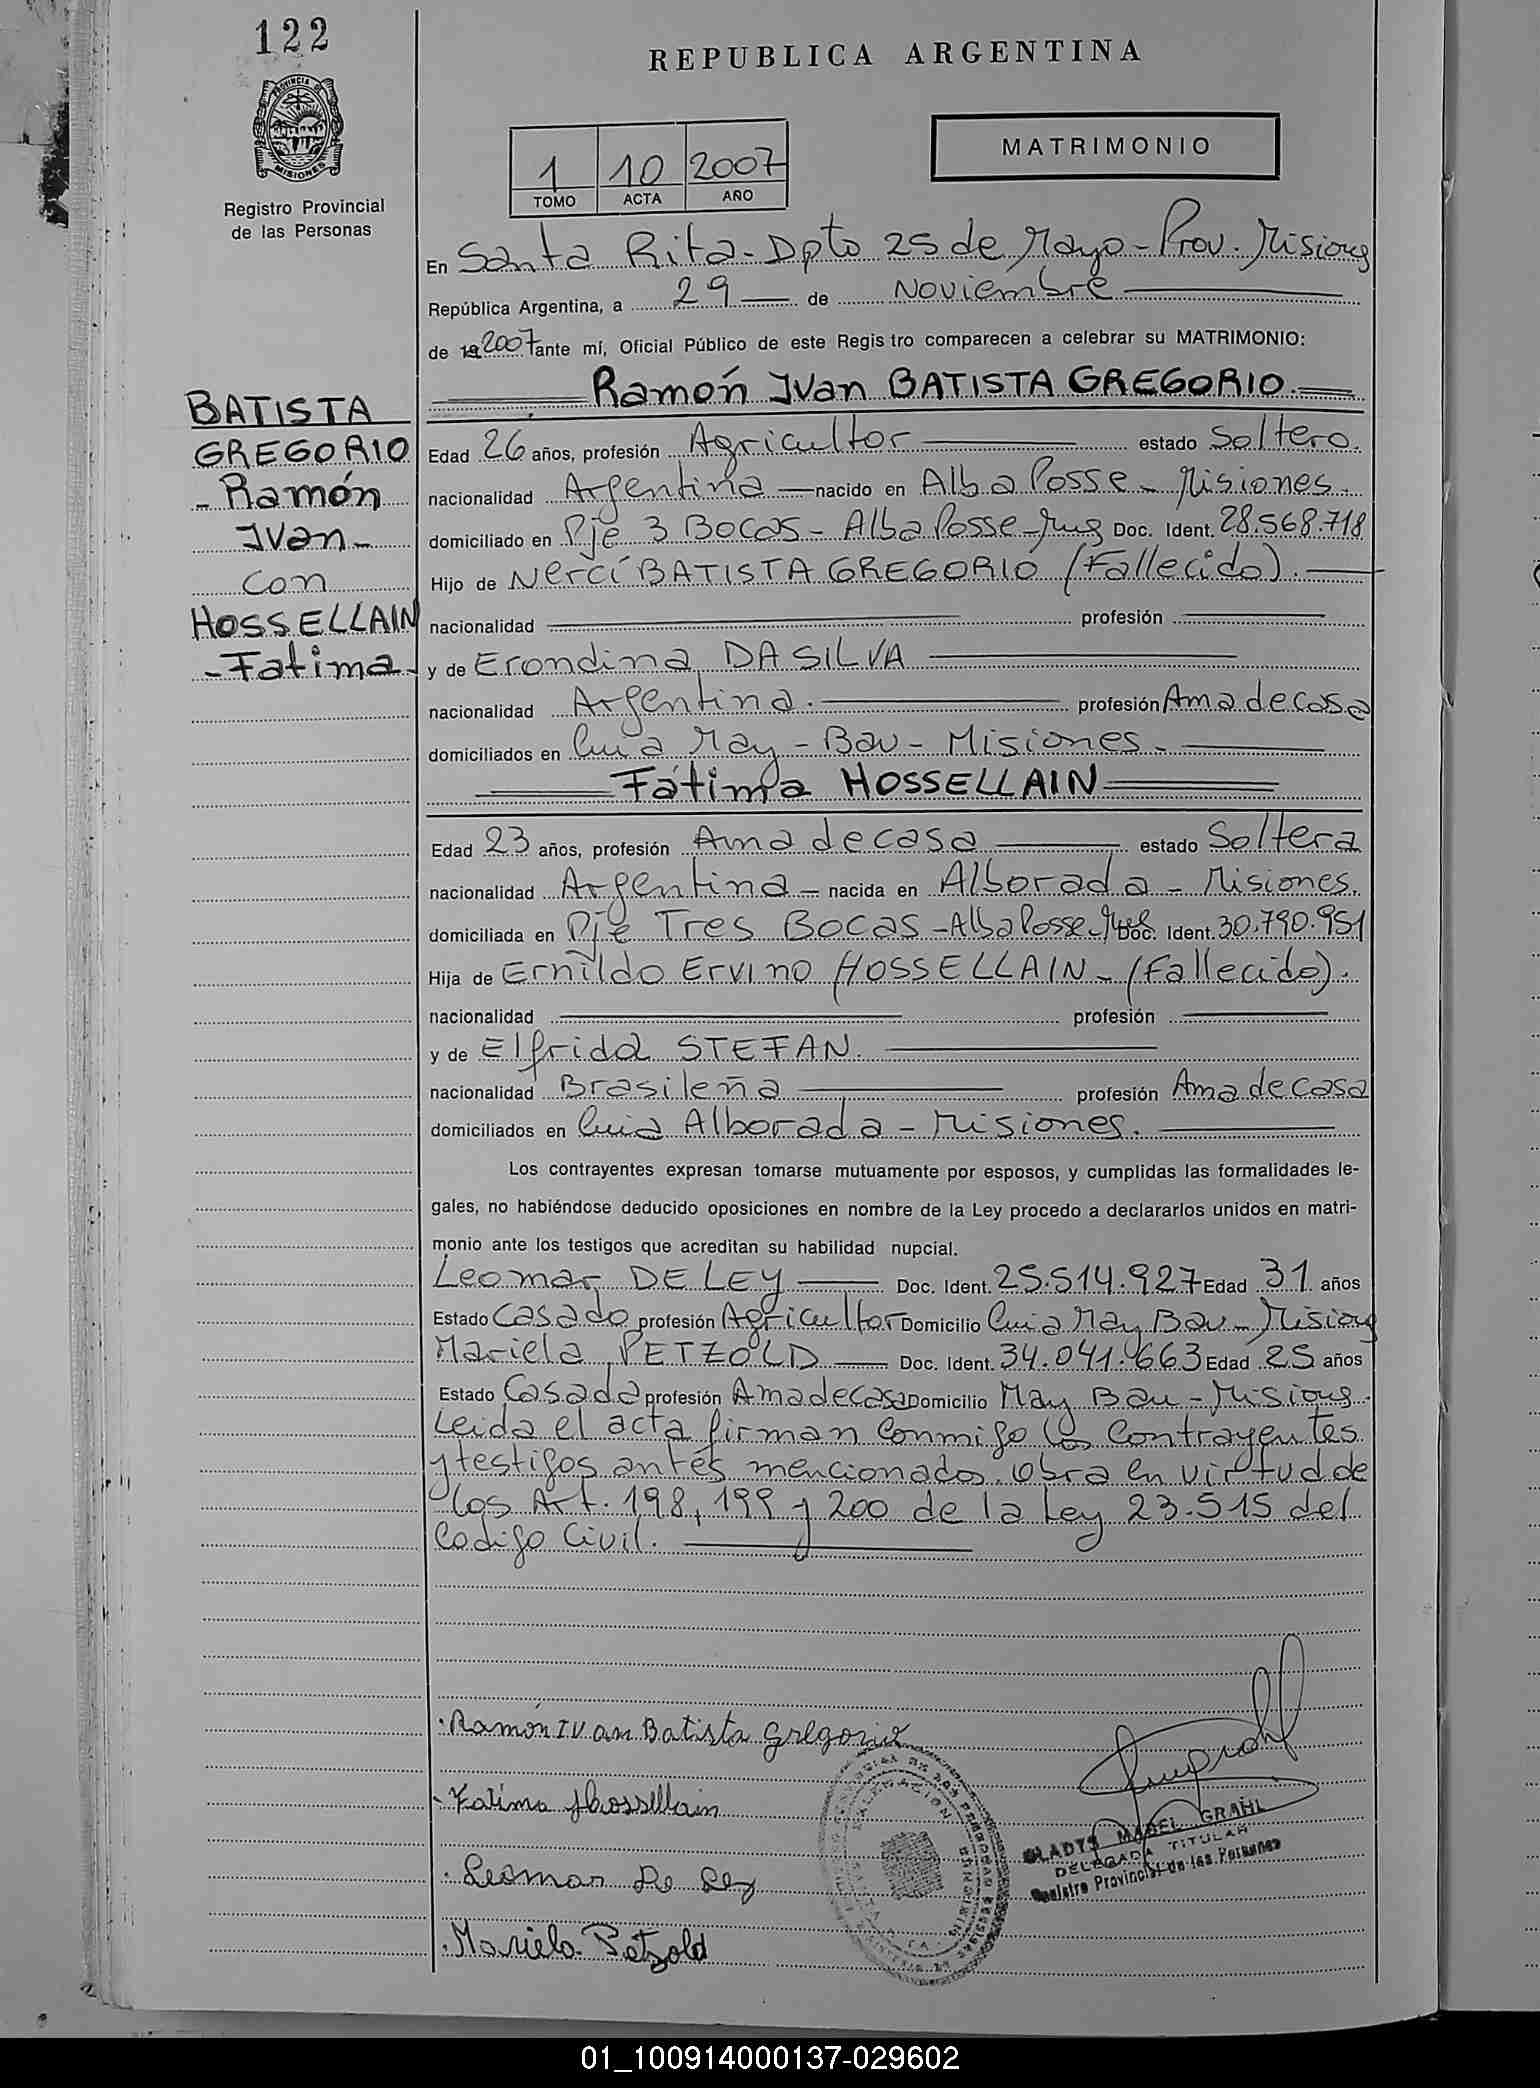 122
REPUBLICA ARGENTINA
PROVINCIA DE MISIONES
Registro Provincial
de las Personas
1 10 2007
TOMO ACTA AÑO
MATRIMONIO
En Santa Rita - Dpto 25 de Mayo - Prov. Misiones
República Argentina, a 29 de Noviembre
de 19 2007 ante mí, Oficial Público de este Registro comparecen a celebrar su MATRIMONIO:
Ramón Ivan BATISTA GREGORIO
BATISTA
GREGORIO
- Ramón
Ivan -
con
HOSSELLAIN
- Fatima -
Edad 26 años, profesión Agricultor estado Soltero.
nacionalidad Argentina nacido en Alba Posse - Misiones.
domiciliado en Pje 3 Bocas - Alba Posse - Mnes Doc. Ident. 28.568.718
Hijo de Nercí BATISTA GREGORIO (Fallecido).
nacionalidad profesión
y de Erondina DA SILVA
nacionalidad Argentina. profesión Ama de casa
domiciliados en Cnia May - Bav - Misiones.
Fátima HOSSELLAIN
Edad 23 años, profesión Ama de casa estado Soltera
nacionalidad Argentina - nacida en Alborada - Misiones.
domiciliada en Pje Tres Bocas - Alba Posse - Doc. Ident. 30.790.951
Hija de Ernildo Ervino HOSSELLAIN - (Fallecido).
nacionalidad profesión
y de Elfrida STEFAN.
nacionalidad Brasileña profesión Ama de casa
domiciliados en Cnia Alborada - Misiones.
Los contrayentes expresan tomarse mutuamente por esposos, y cumplidas las formalidades le-
gales, no habiéndose deducido oposiciones en nombre de la Ley procedo a declararlos unidos en matri-
monio ante los testigos que acreditan su habilidad nupcial.
Leomar DE LEY Doc. Ident. 25.514.927 Edad 31 años
Estado Casado profesión Agricultor Domicilio Cnia May Bav - Misiones
Mariela PETZOLD Doc. Ident. 34.041.663 Edad 25 años
Estado Casada profesión Ama de casa Domicilio May Bav - Misiones.
Leida el acta firman conmigo los contrayentes
y testigos antes mencionados. Obra en virtud de
los Art. 198, 199 y 200 de la Ley 23.515 del
Codigo Civil.
Ramón Ivan Batista Gregorio
Fatima Hossellain
Leomar De Ley
Mariela Petzold
GLADYS MABEL GRAHL
DELEGADA TITULAR
Registro Provincial de las Personas
01_100914000137-029602